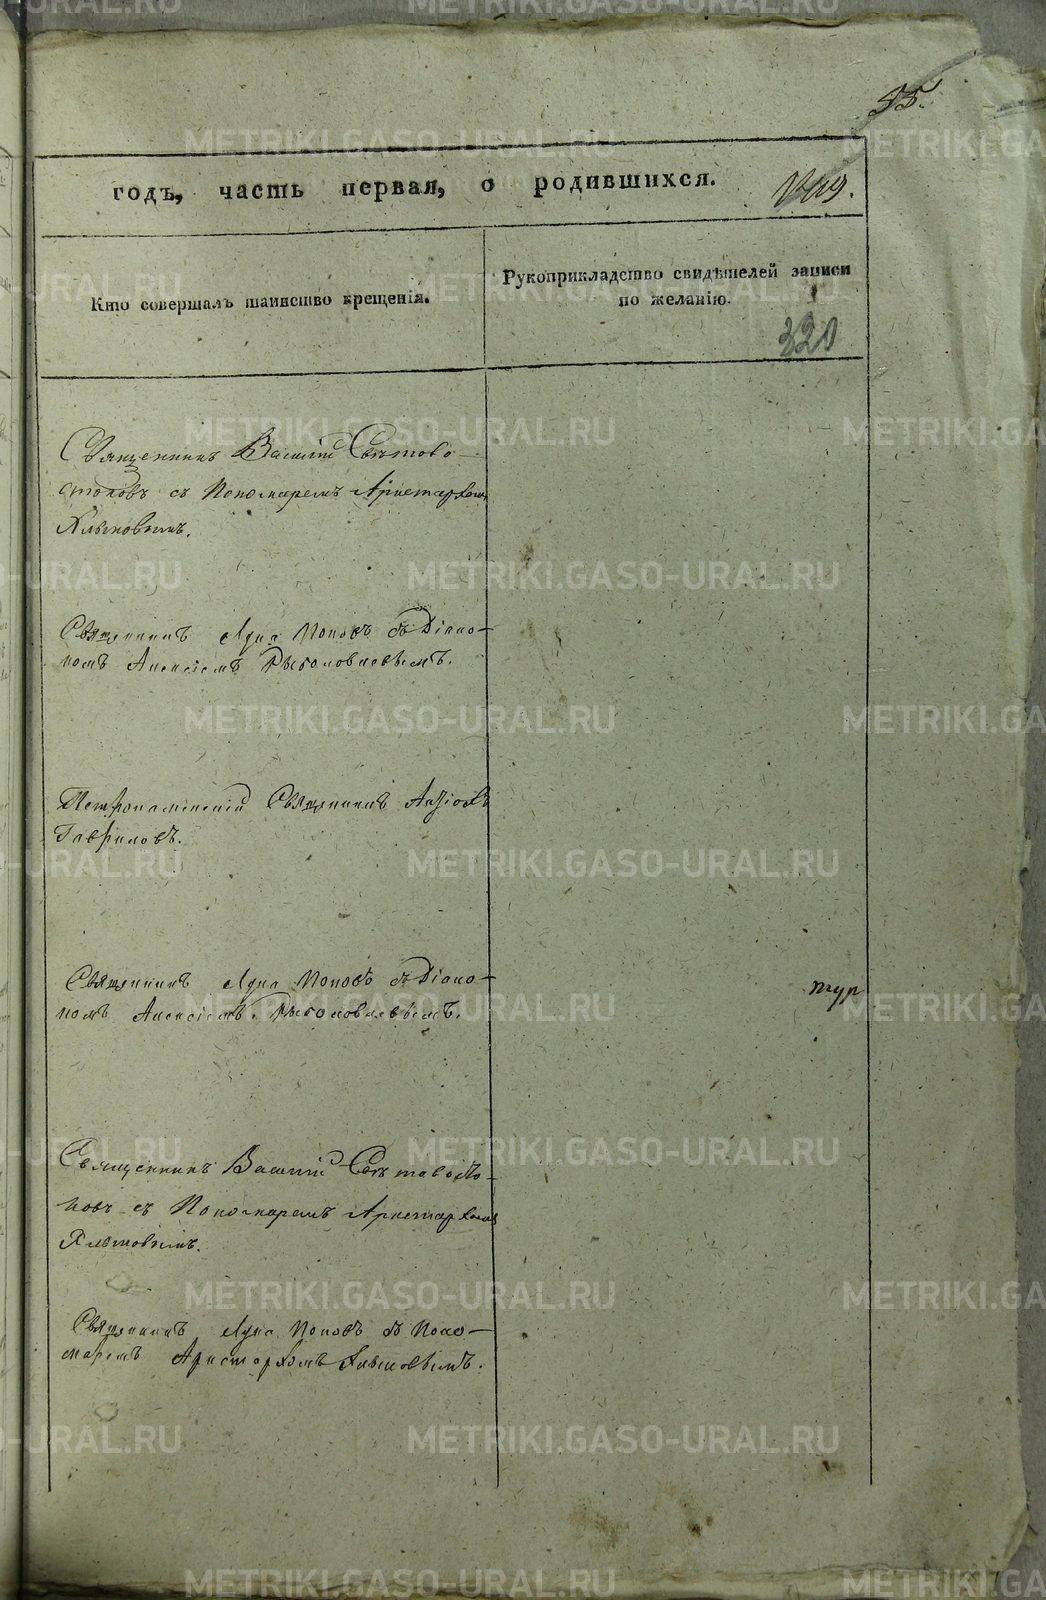 55.
годъ, часть первая, о родившихся.
Кто совершалъ таинство крещенія.
Рукоприкладство свидѣтелей записи
по желанію.
320
Священникъ Василій Свѣтово-
столовъ съ Пономаремъ Аристархомъ
Хлыновымъ.
Священникъ Лука Поповъ съ Діако-
номъ Алексіемъ Рыболовлевымъ.
Петрокаменскій Священникъ
Гавриловъ.
Священникъ Лука Поповъ съ Діако-
номъ Алексіемъ Рыболовлевымъ.
Священникъ Василій
съ Пономаремъ Аристархомъ
Хлыновымъ.
Священникъ Лука Поповъ съ Поно-
маремъ Аристархомъ Хлыновымъ.
METRIKI.GASO-URAL.RU